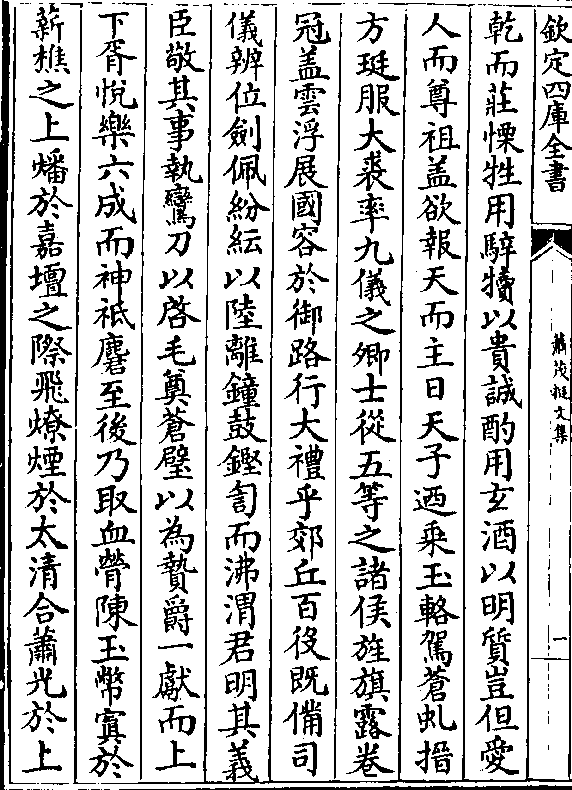 欽定四庫全書
蕭茂挺文集
一
乾而莊慄牲用騂犢以貴誠酌用玄酒以明質豈但愛
人而尊祖盖欲報天而主日天子迺乗玉輅駕蒼虬搢
方珽服大裘率九儀之卿士從五等之諸侯旌旗露卷
冠盖雲浮展國容於御路行大禮乎郊丘百役既備司
儀辨位劍佩紛紜以陸離鐘鼓鏗訇而沸渭君明其義
臣敬其事執鸞刀以啓毛奠蒼璧以為贄爵一獻而上
下胥悅樂六成而神祗麕至後乃取血膋陳玉幣寘於
薪樵之上燔於嘉壇之際飛燎煙於太清合蕭光於上